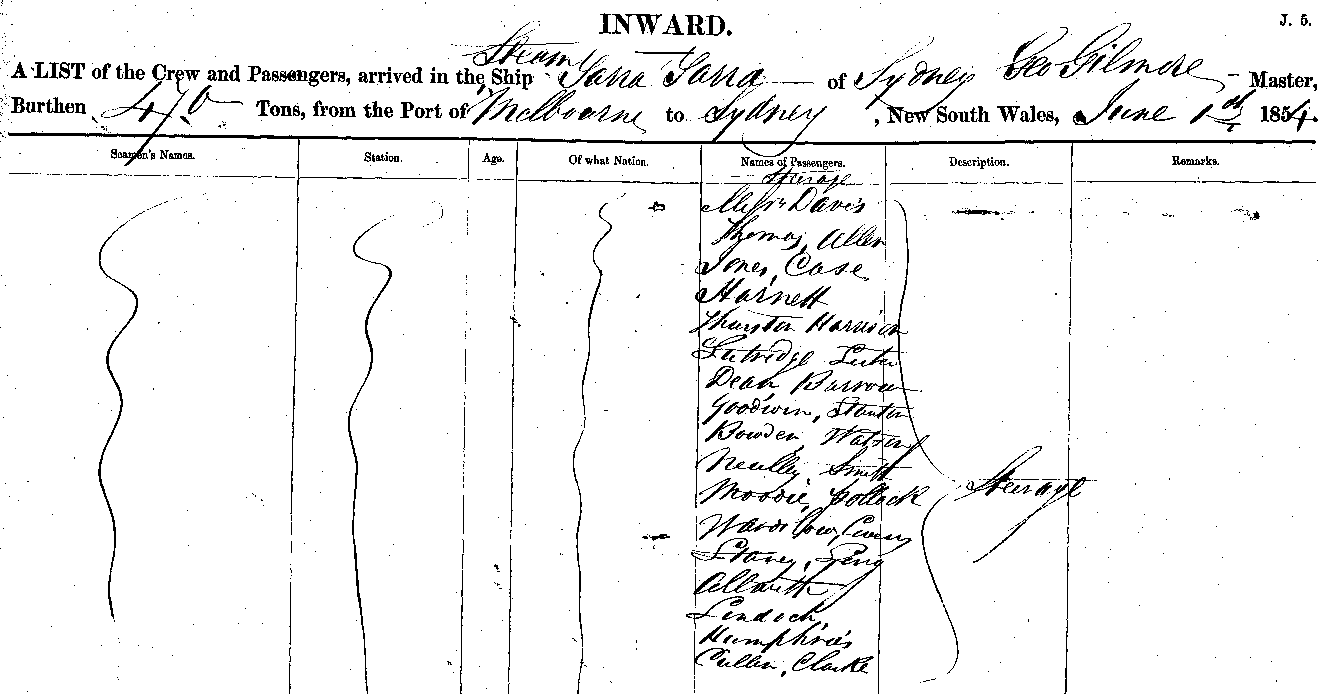 INWARD.
J. 5.
Steam
A LIST of the Crew and Passengers, arrived in the Ship Yarra Yarra of Sydney Geo Gilmore Master,
Burthen 470 Tons, from the Port of Melbourne to Sydney, New South Wales, June 1st 1854.
Seamen's Names. Station. Age. Of what Nation. Names of Passengers. Description. Remarks.
Steerage
Messrs Davis
Thomas, Allen
Jones, Case
Harnett
Thurston Harrison
Dean Barrow
Goodwin, Stanton
Bowden Watson
Smith
Moodie, Pollock
Steerage
Wardlow,
Humphries
Cullen, Clarke